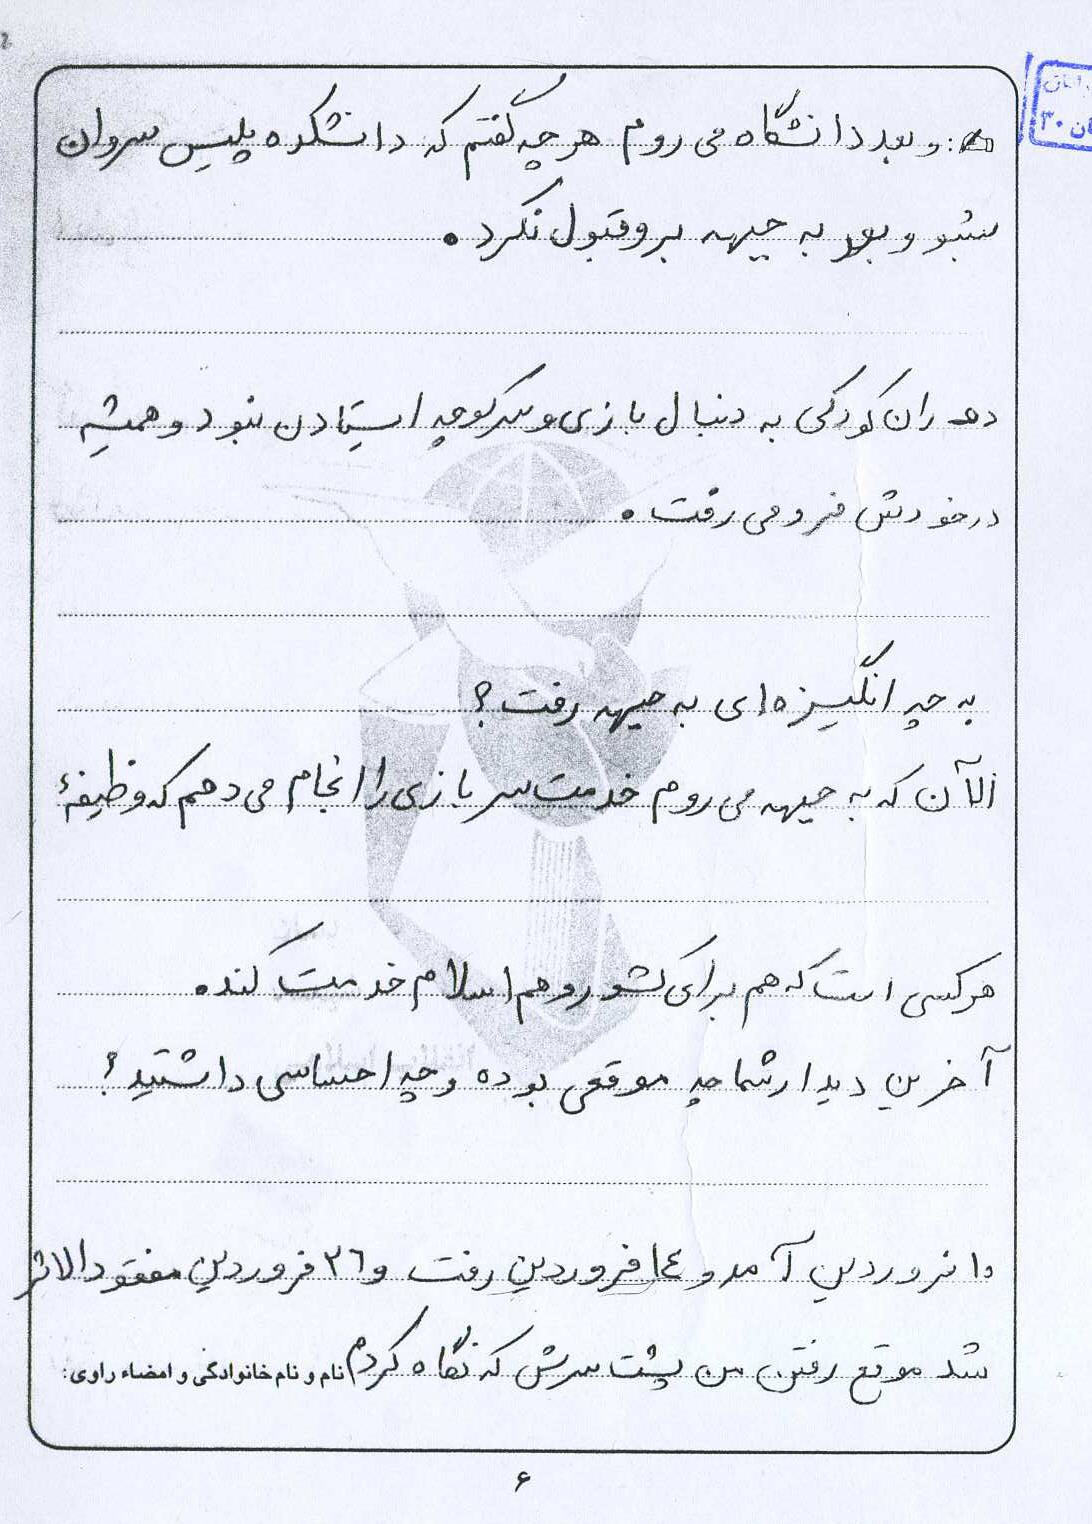 و بعد دانشگاه می روم هر چه گفتم که دانشکده پلیس سروان
بشو و بعد به جبهه برو قبول نکرد.
دوران کودکی به دنبال بازی و سر کوچه ایستادن نبود و همیشه
در خودش فرو می رفت.
به چه انگیزه ای به جبهه رفت؟
الآن که به جبهه می روم خدمت سربازی را انجام می دهم که وظیفۀ
هر کسی است که هم برای کشور و هم اسلام خدمت کند.
آخرین دیدار شما چه موقعی بوده و چه احساسی داشتید؟
۱۰ فروردین آمد و ۱٤ فروردین رفت و ۲٦ فروردین مفقودالاثر
شد موقع رفتن من پشت سرش که نگاه کردم
نام و نام خانوادگی و امضاء راوی:
۶